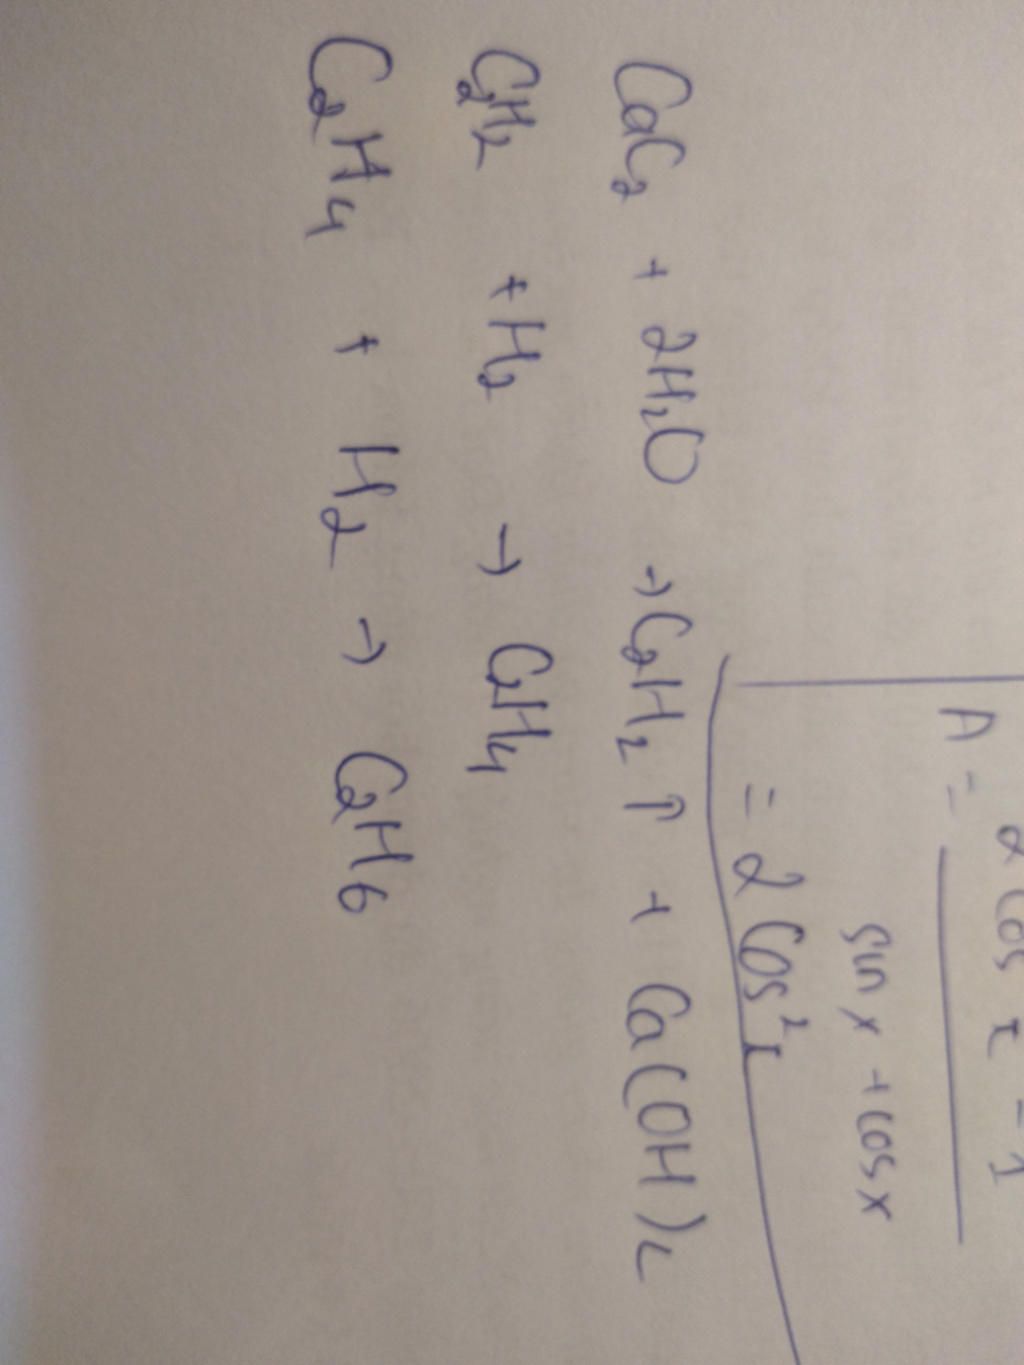 A = 2 cos x - 1
sin x + cos x
= 2 cos²x
CaC₂ + 2H₂O → C₂H₂ ↑ + Ca(OH)₂
C₂H₂ + H₂ → C₂H₄
C₂H₄ + H₂ → C₂H₆